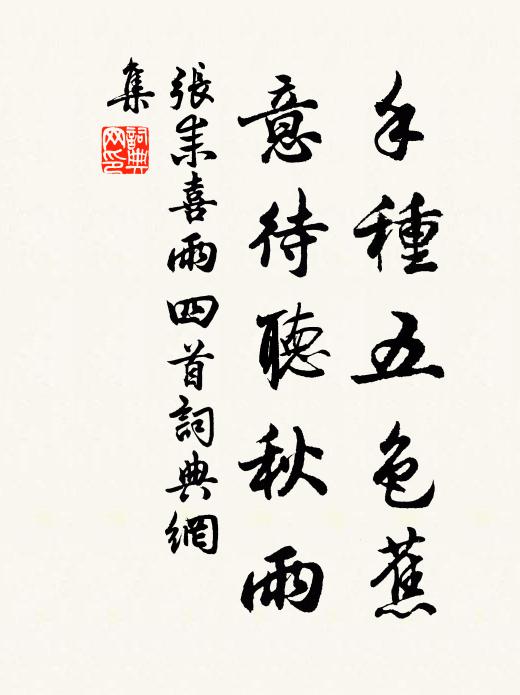 手種五色蕉
意待聽秋雨
張耒喜雨四首詞典網
集
詞典網印